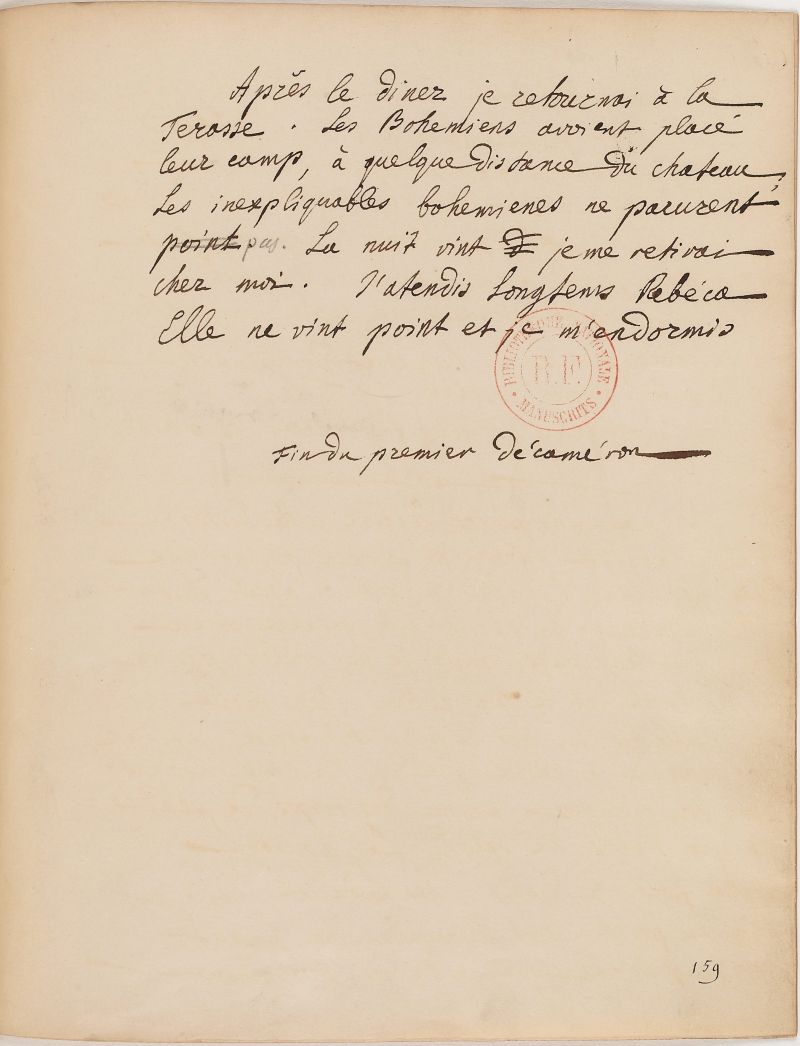 Après le diner je retournai à la
Terasse. Les Bohemiens avoient placé
leur camp, à quelque distance du chateau,
Les inexpliquables bohemienes ne parurent
point pas. La nuit vint je me retirai
chez moi. J'atendis longtems Rebéca
Elle ne vint point et je m'endormis
BIBLIOTHEQUE NATIONALE
R.F.
MANUSCRITS
Fin du premier Décaméron
159